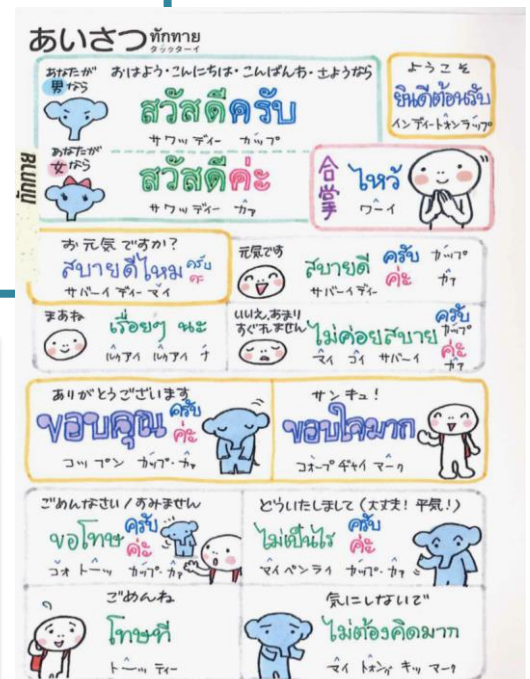 あいさつ ทักทาย
タックターイ
あなたが
男なら
おはよう・こんにちは・こんばんわ・さようなら
สวัสดีครับ
サワッディー カップ
あなたが
女なら
สวัสดีค่ะ
サワッディー カァ
ようこそ
ยินดีต้อนรับ
インディートネンラップ
合掌
ไหว้
ワーイ
お元気ですか?
สบายดีไหม ครับ
ค่ะ
サバーイディー マイ
元気です
สบายดี ครับ カップ
ค่ะ カァ
サバーイディー
まあね
เรื่อยๆ นะ
ルゥアイ ルゥアイ ナ
いいえ、あまり
すぐれません
ไม่ค่อยสบาย ครับ カップ
ค่ะ カァ
マイ コイ サバーイ
ありがとうございます
ขอบคุณ ครับ
ค่ะ
コップン カップ・カァ
サンキュ!
ขอบใจมาก
コォープヂャイ マーク
ごめんなさい/すみません
ขอโทษ ครับ
ค่ะ
コォ トーッ カップ・カァ
どういたしまして(大丈夫! 平気!)
ไม่เป็นไร ครับ
ค่ะ
マイペンライ カップ・カァ
ごめんね
โทษที
トーッ ティー
気にしないで
ไม่ต้องคิดมาก
マイ トォング キッ マーク